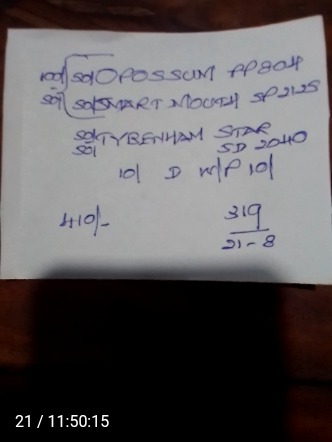 100/ 50/ OPOSSUM PP804
50/ 50/ SMART MOUTH SP2125
50/ TYBENHAM STAR
50/ SD 2040
10/ D W/P 10/
410/- 319
21-8
21 / 11:50:15